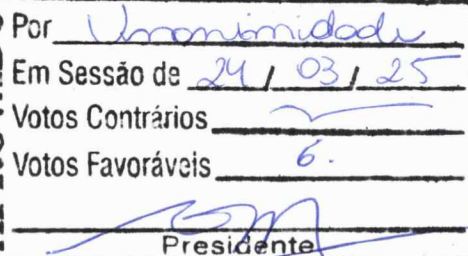 Por Unanimidade
Em Sessão de 24 / 03 / 25
Votos Contrários
Votos Favoráveis 6.
Presidente